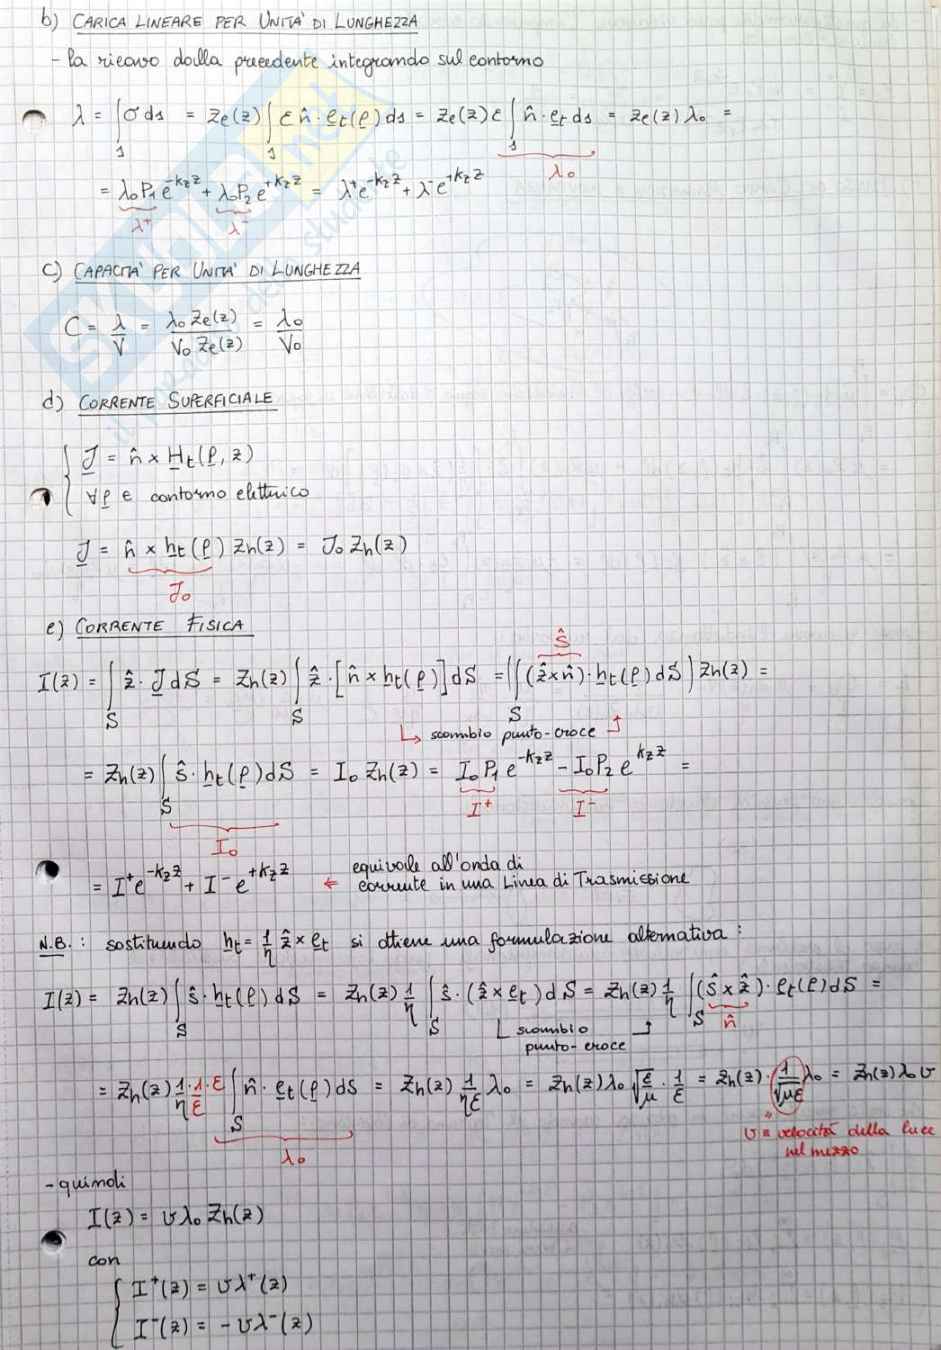 b) CARICA LINEARE PER UNITA' DI LUNGHEZZA
- la ricavo dalla precedente integrando sul contorno
λ = ∫_s σ ds = Z_e(z) ∫_s ε n̂ · e_t(ρ) ds = Z_e(z) ε ∫_s n̂ · e_t ds = Z_e(z) λ₀ =
λ₀
= λ₀P₁ e^{-k_z z} + λ₀P₂ e^{+k_z z} = λ⁺e^{-k_z z} + λ⁻e^{+k_z z}
λ⁺ λ⁻
c) CAPACITA' PER UNITA' DI LUNGHEZZA
C = λ/V = λ₀ Z_e(z) / V₀ Z_e(z) = λ₀/V₀
d) CORRENTE SUPERFICIALE
J = n̂ × H_t(ρ, z)
∀ρ ∈ contorno elettrico
J = n̂ × h_t(ρ) Z_h(z) = J₀ Z_h(z)
J₀
e) CORRENTE FISICA
ŝ
I(z) = ∫_S ẑ · J dS = Z_h(z) ∫_S ẑ · [n̂ × h_t(ρ)] dS = (∫_S (ẑ × n̂) · h_t(ρ) dS) Z_h(z) =
↳ scambio punto-croce
= Z_h(z) ∫_S ŝ · h_t(ρ) dS = I₀ Z_h(z) = I₀P₁ e^{-k_z z} - I₀P₂ e^{k_z z} =
I₀ I⁺ I⁻
= I⁺e^{-k_z z} + I⁻e^{+k_z z} ← equivale all'onda di
corrente in una Linea di Trasmissione
N.B. : sostituendo h_t = 1/η ẑ × e_t si ottiene una formulazione alternativa :
I(z) = Z_h(z) ∫_S ŝ · h_t(ρ) dS = Z_h(z) 1/η ∫_S ŝ · (ẑ × e_t) dS = Z_h(z) 1/η ∫_S (ŝ × ẑ) · e_t(ρ) dS =
n̂
scambio
punto-croce
= Z_h(z) 1/η · 1/ε · ε ∫_S n̂ · e_t(ρ) dS = Z_h(z) 1/ηε λ₀ = Z_h(z) λ₀ √(ε/μ) · 1/ε = Z_h(z) · 1/√(με) λ₀ = Z_h(z) λ₀ v
λ₀
v = velocità della luce
nel mezzo
- quindi
I(z) = v λ₀ Z_h(z)
con
I⁺(z) = v λ⁺(z)
I⁻(z) = - v λ⁻(z)